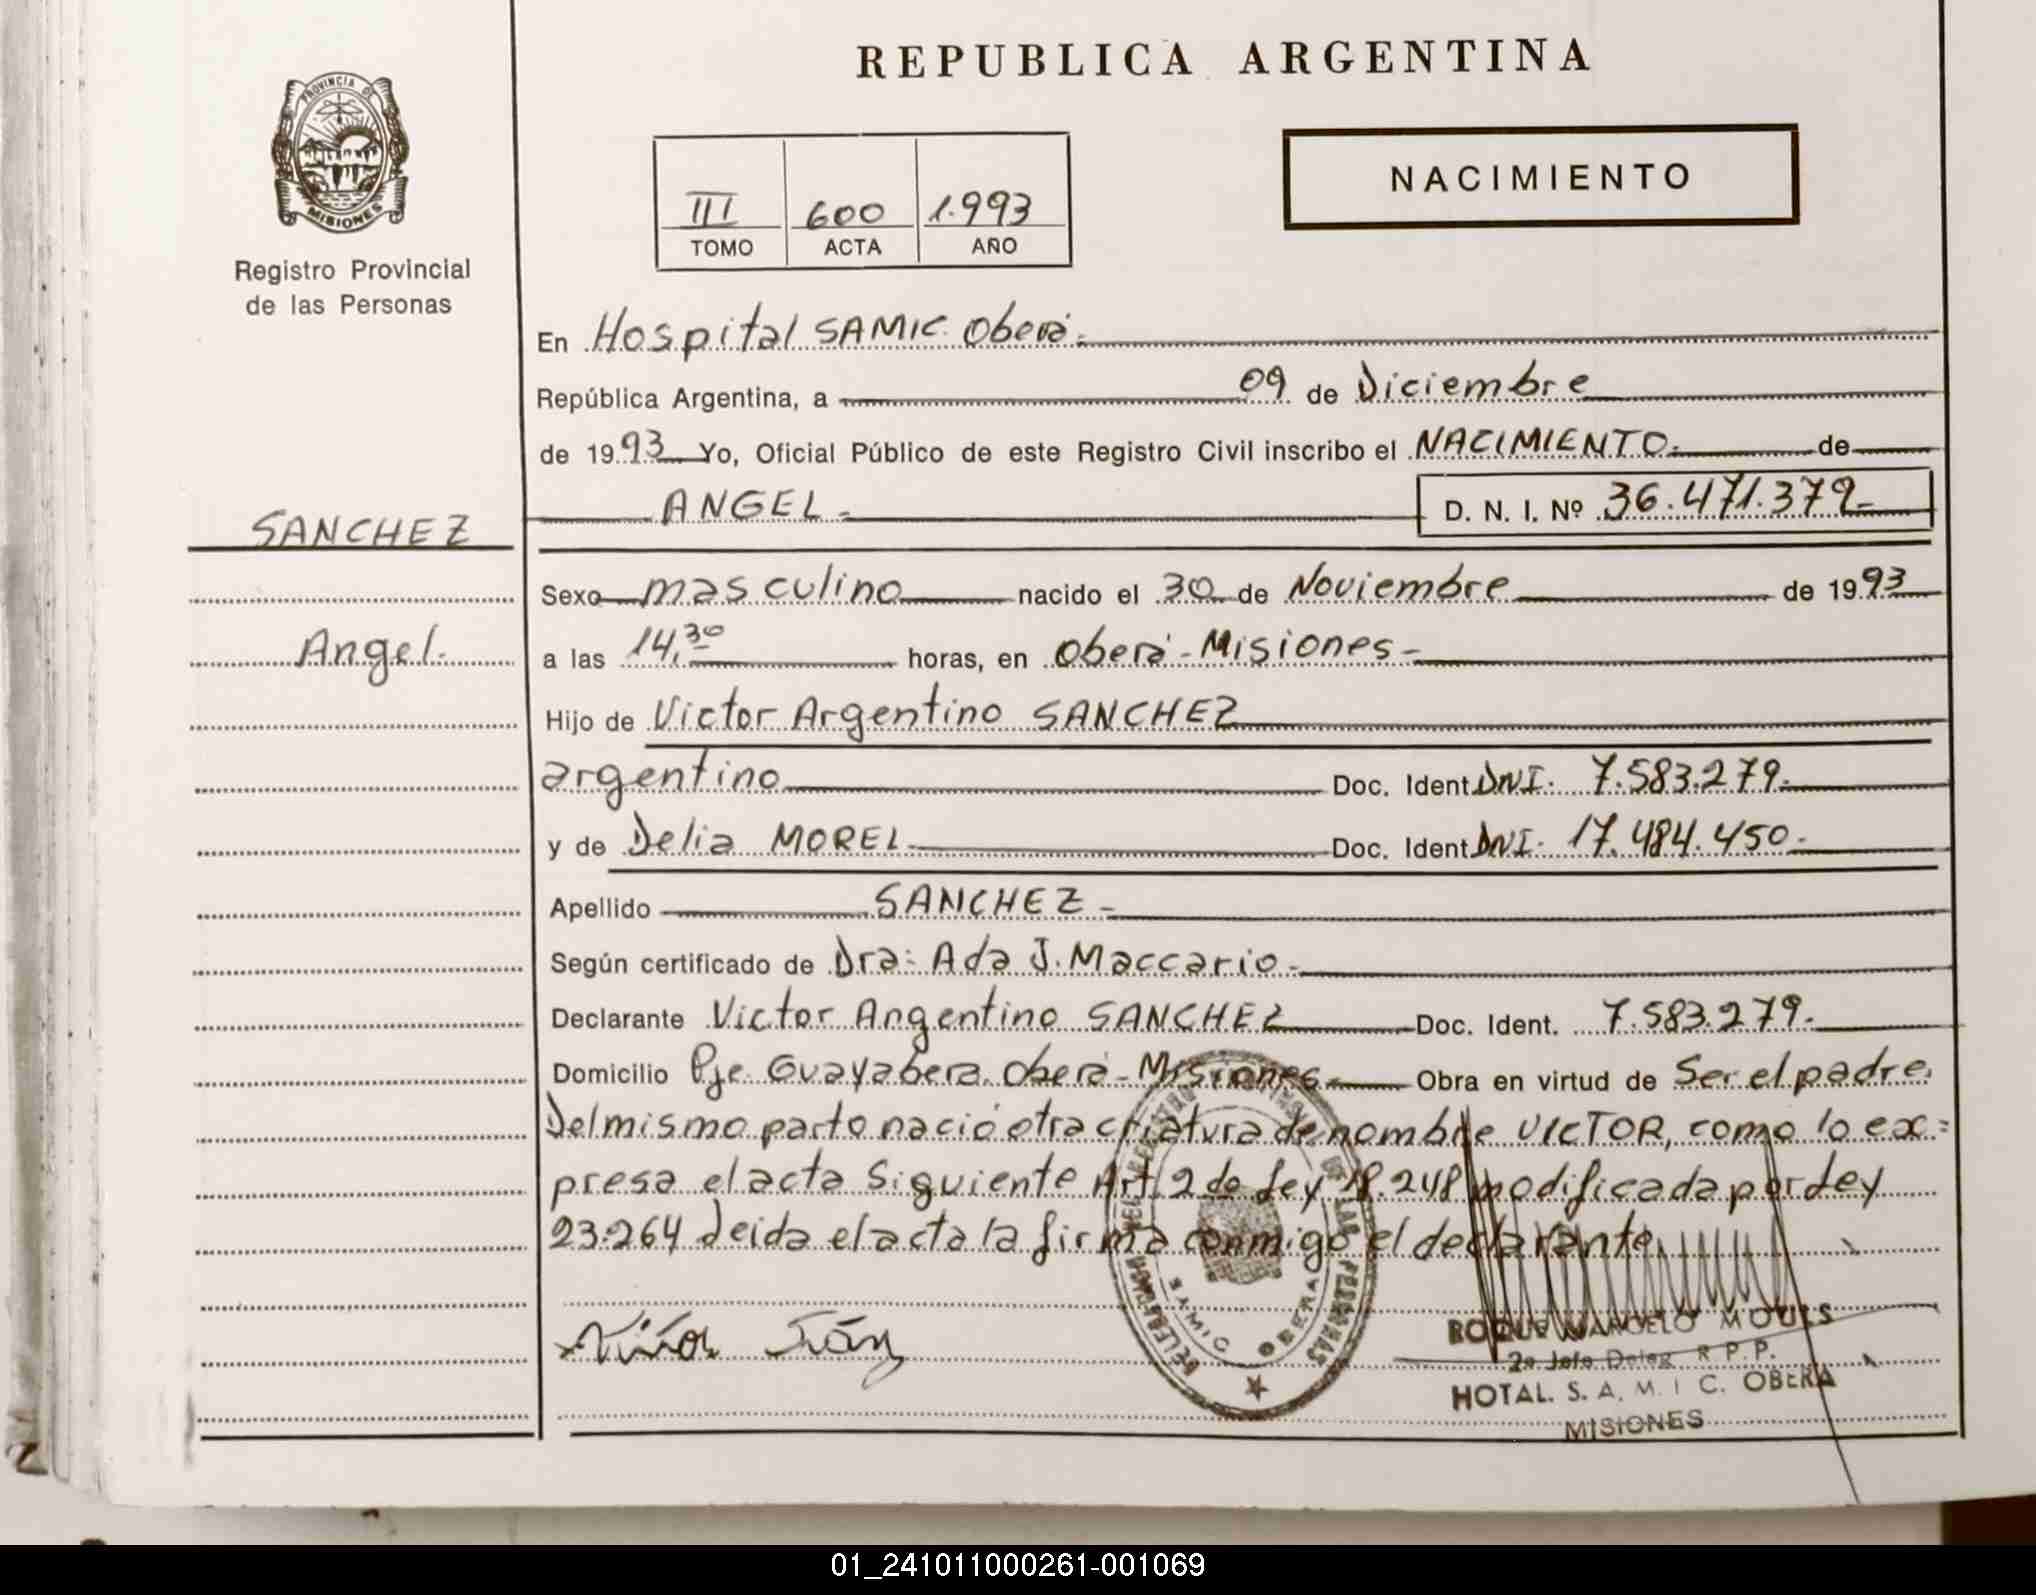 REPUBLICA ARGENTINA
PROVINCIA DE
MISIONES
Registro Provincial
de las Personas
NACIMIENTO
III 600 1.993
TOMO ACTA AÑO
En Hospital SAMIC. Oberá.-
República Argentina, a 09 de Diciembre
de 1993 Yo, Oficial Público de este Registro Civil inscribo el NACIMIENTO.- de
SANCHEZ
ANGEL.- D. N. I. Nº 36.471.379-
Sexo masculino nacido el 30 de Noviembre de 1993
Angel.
a las 14,30 horas, en Oberá - Misiones -
Hijo de Victor Argentino SANCHEZ
argentino Doc. Ident DNI. 7.583.279.-
y de Delia MOREL Doc. Ident DNI. 17.484.450.-
Apellido SANCHEZ -
Según certificado de Dra: Ada J. Maccario.-
Declarante Victor Argentino SANCHEZ Doc. Ident. 7.583.279.-
Domicilio Pje. Guayabera. Oberá - Misiones.- Obra en virtud de Ser el padre.
Del mismo parto nació otra criatura de nombre VICTOR, como lo ex=
presa el acta Siguiente Art. 2 de Ley 18.248 modificada por Ley
23.264 Leida el acta la firma conmigo el declarante.
DELEGACION DEL REGISTRO DE LAS PERSONAS
SAMIC OBERA
ROQUE MARCELO
2º Jefe Deleg. R.P.P.
HOTAL. S. A. M. I C. OBERA
MISIONES
01_241011000261-001069